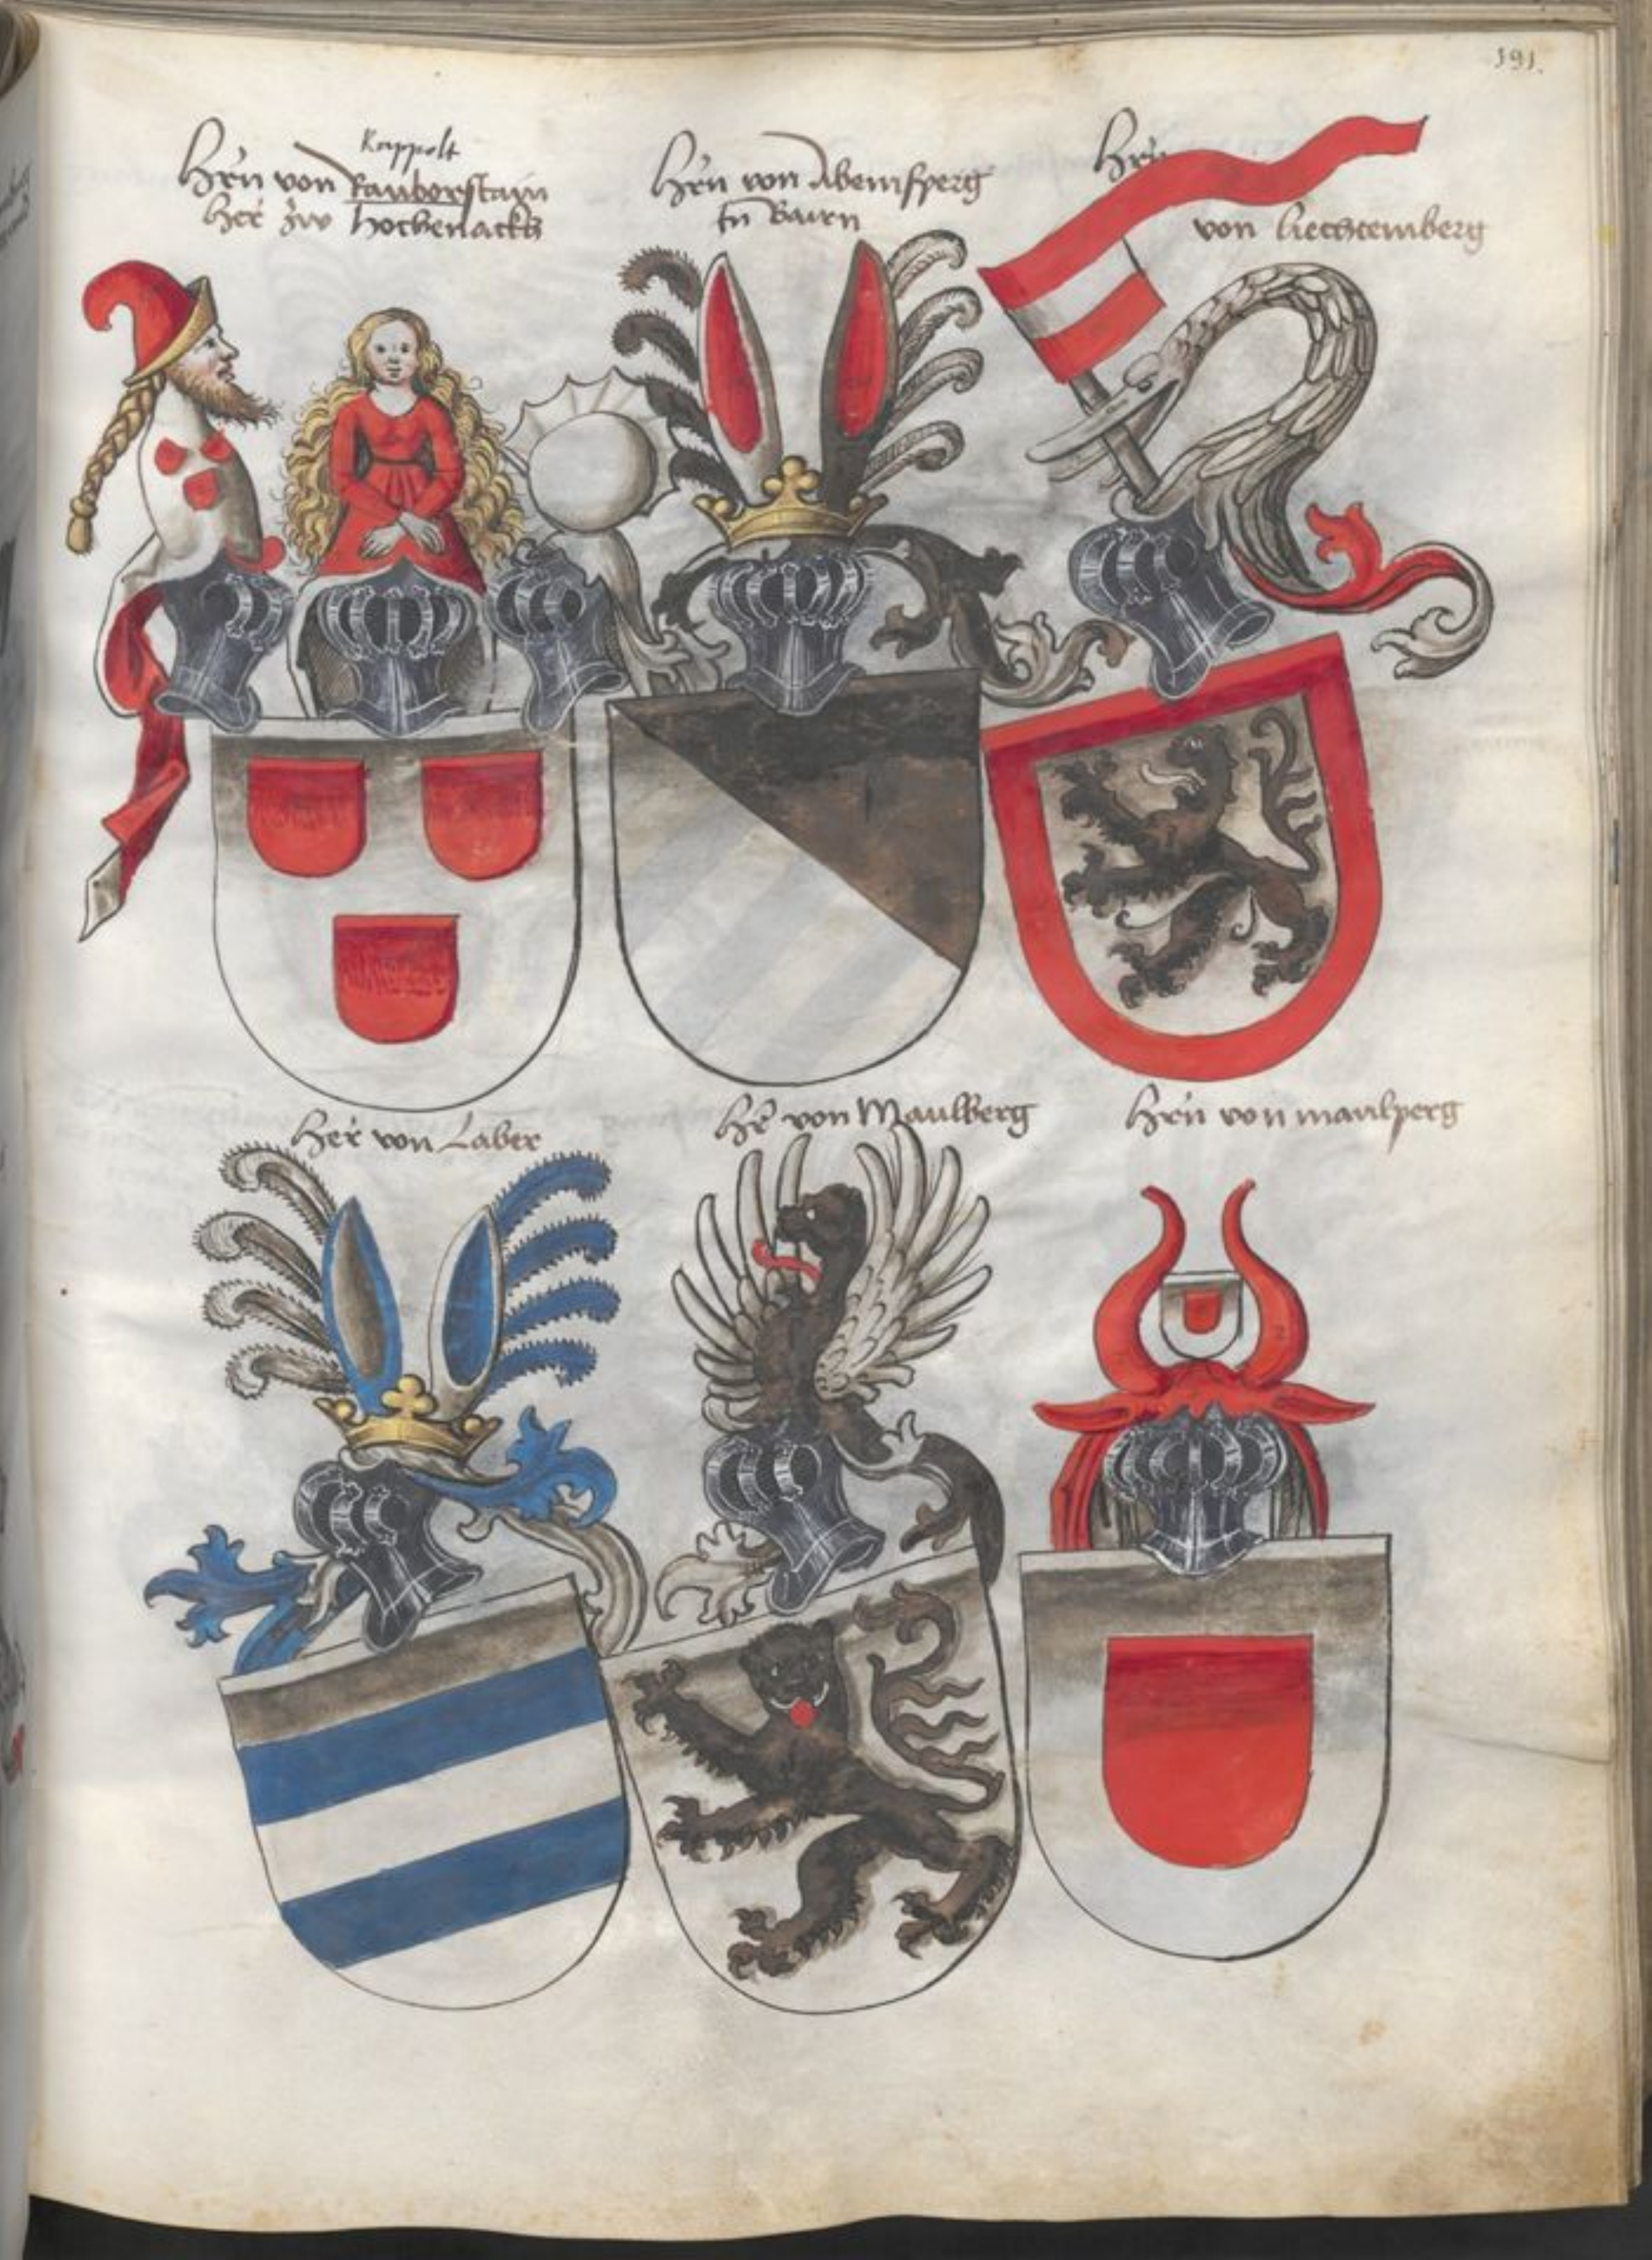 191.
Kappolt
Hrn von Rauborstain
Her zwo hochenackh
Hrn von Abemsperg
In Bairn
Hrn
von liechtemberg
Her von Laber
Hr von Maulberg
Hrn von maulperg